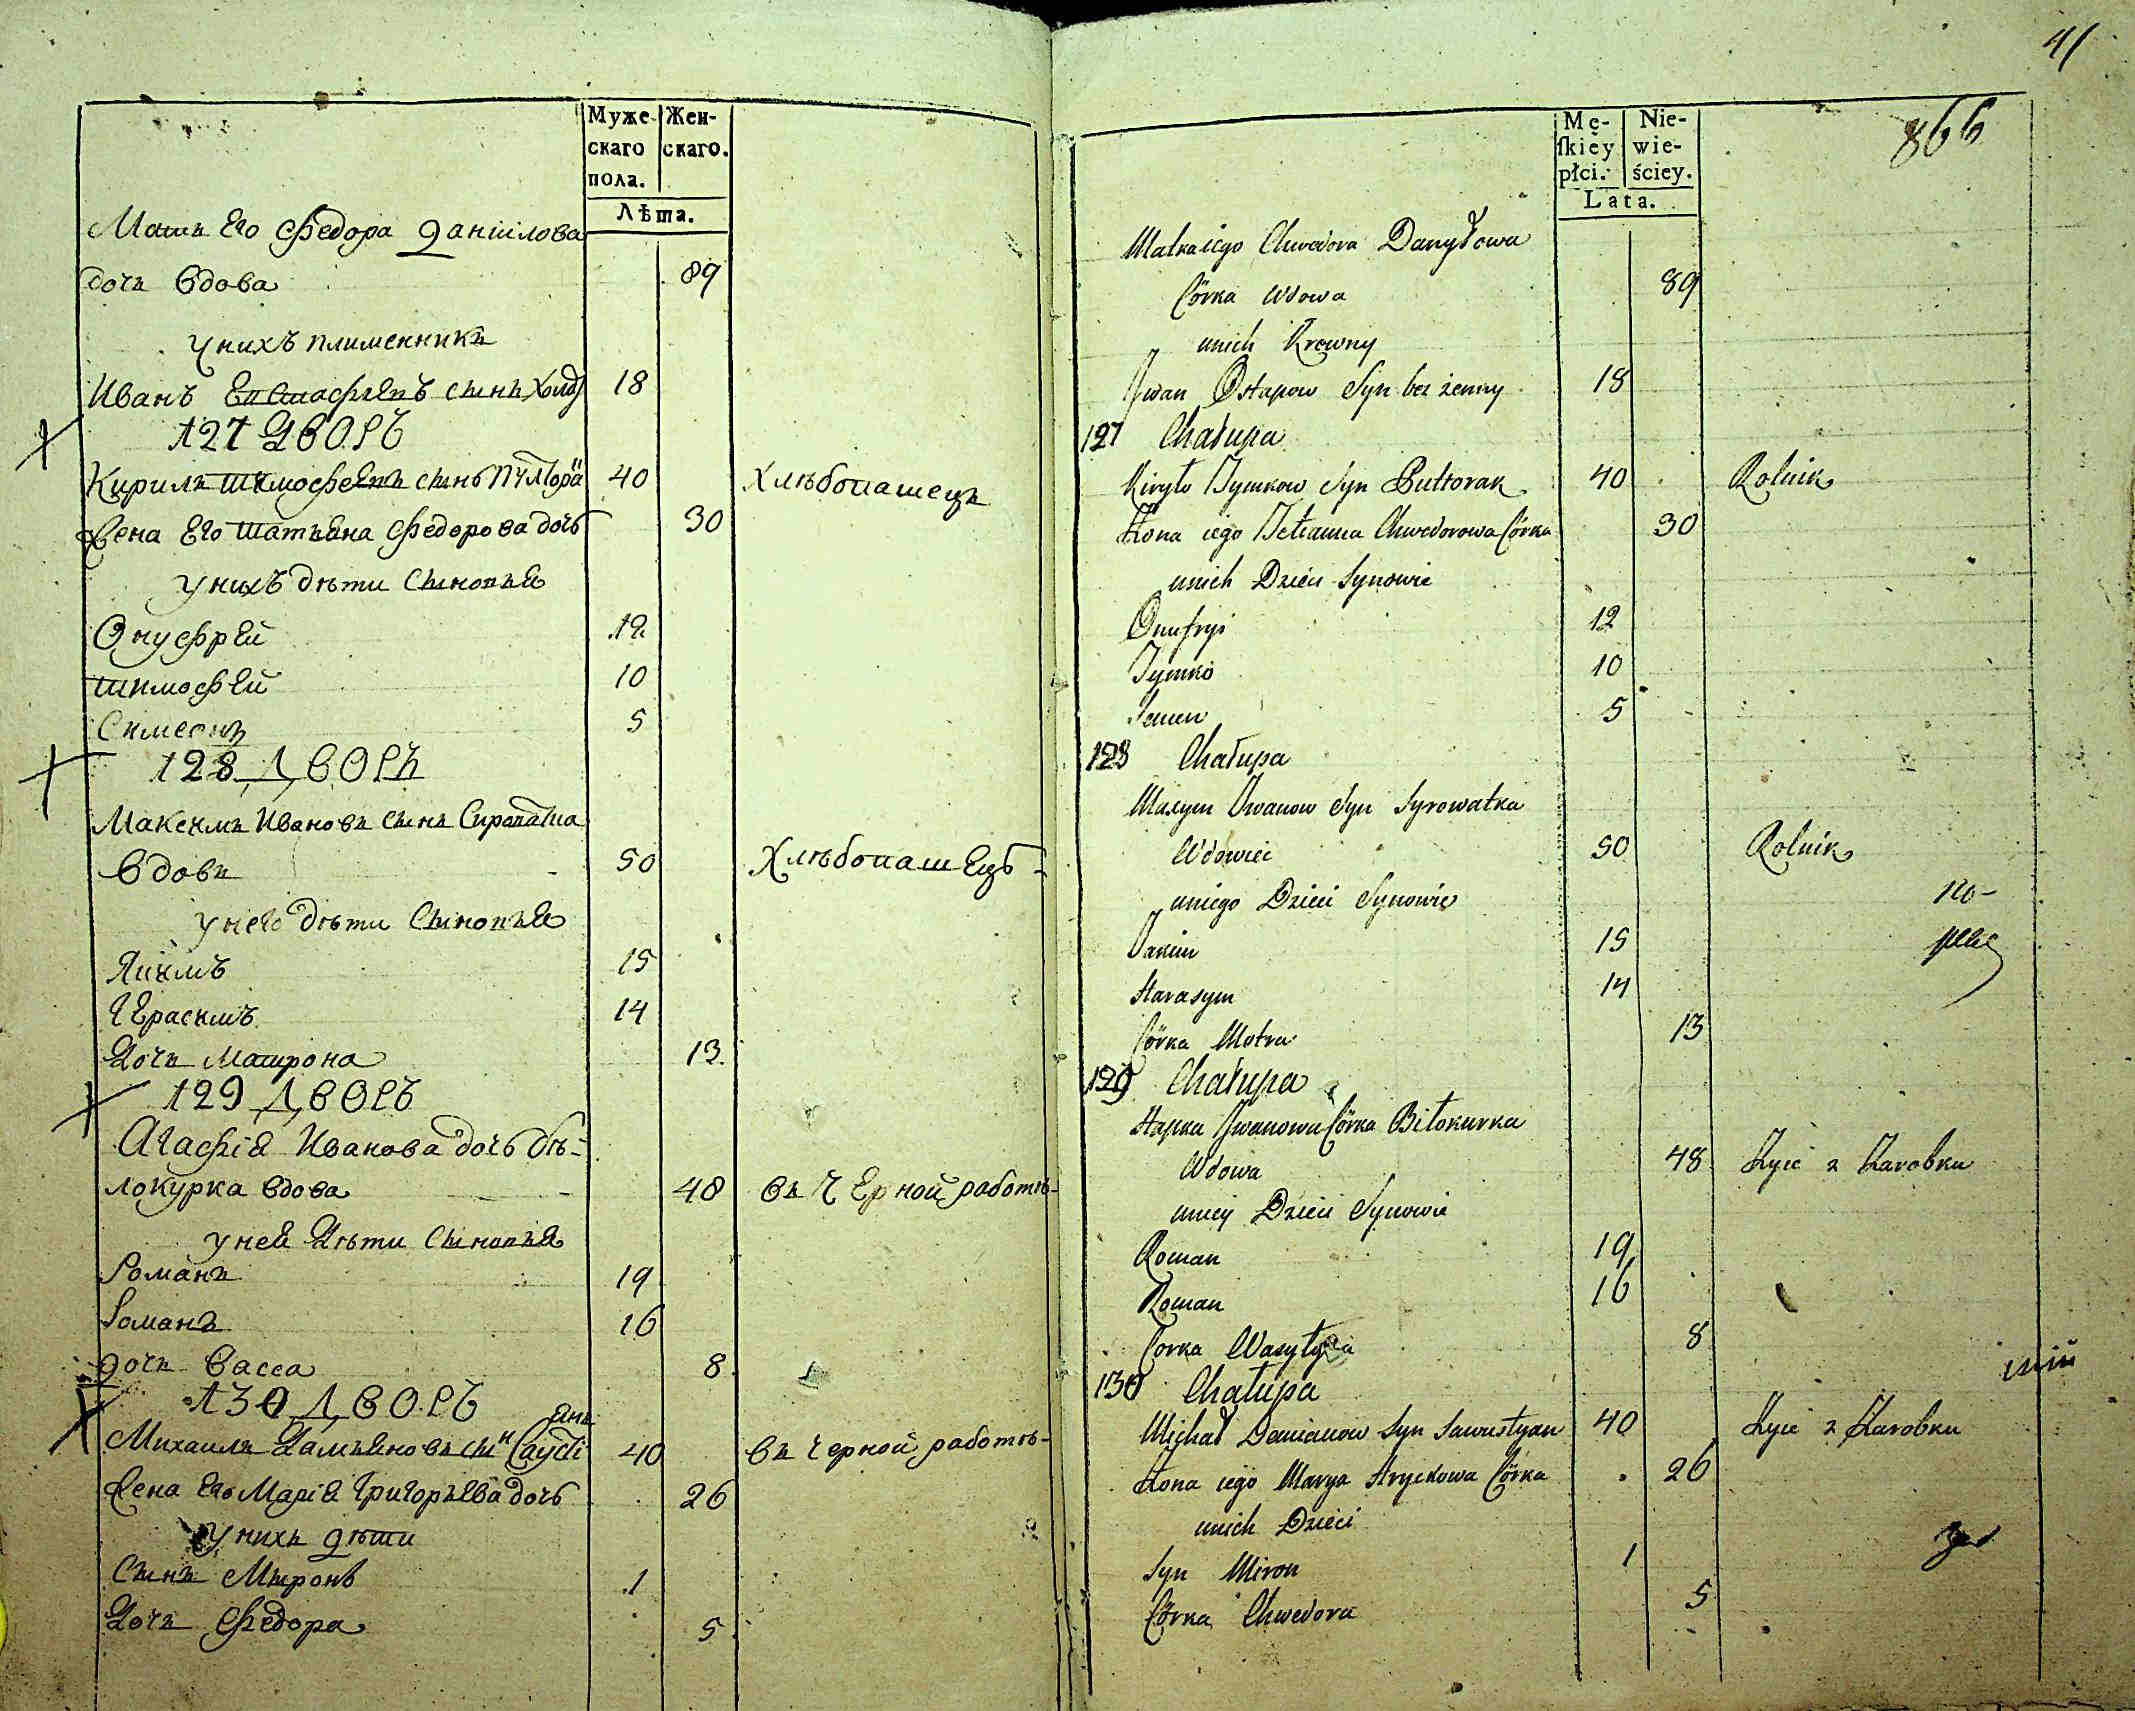 Муже-
скаго
пола.
Жен-
скаго.
Лѣта.
Мать Его Федора Даніилова
дочь вдова 89
у нихъ плименникъ
Иванъ Евстафьевъ сынъ холос 18
127 ДВОРЪ
Кирилъ Тимофеевъ сынъ Пултора 40 Хлѣбопашецъ
Жена Его Татьяна Федорова дочь 30
у нихъ дѣти сыновья
Онуфрей 12
Тимофей 10
Симеонъ 5
128 ДВОРЪ
Максимъ Ивановъ сынъ Сироватка
вдовъ 50 Хлѣбопашецъ
у него дѣти сыновья
Якимъ 15
Герасимъ 14
Дочь Матрона 13
129 ДВОРЪ
Агафія Иванова дочь бѣ-
локурка вдова 48 въ черной работѣ
у ней дѣти сыновья
Романъ 19
Романъ 16
дочь Васса 8
130 ДВОРЪ
янъ
Михаилъ Дамьяновъ сын Саусті 40 въ черной работѣ
Жена его Марія Григорьева дочь 26
у нихъ дѣти
Сынъ Миронъ 1
Дочь Федора 5
41
866
Mę-
skiey
płci.
Nie-
wie-
ściey.
Lata.
Matka iego Chwedora Daniłowa
Córka Wdowa 89
unich Krewny
Iwan Ostapow Syn bez żenny 18
127 Chałupa
Kiryło Tymkow Syn Pułtorak 40 Rolnik
Żona iego Tetianna Chwedorowa Córka 30
unich Dzieci Synowie
Onufryi 12
Tymko 10
Semen 5
128 Chałupa
Maxym Iwanow Syn Syrowatka
Wdowiec 50 Rolnik
uniego Dzieci Synowie по-
Jakim 15
Harasym 14
Córka Motra 13
129 Chałupa
Hapka Iwanowa Córka Biłokurka
Wdowa 48 Żyie z Zarobku
uniey Dzieci Synowie
Roman 19
Roman 16
Corka Wasyłyna 8
130 Chałupa
Michał Demianow Syn Sawustyan 40 Żyie z Zarobku
Żona iego Marya Hryckowa Córka 26
unich Dzieci
Syn Miron 1
Córka Chwedora 5